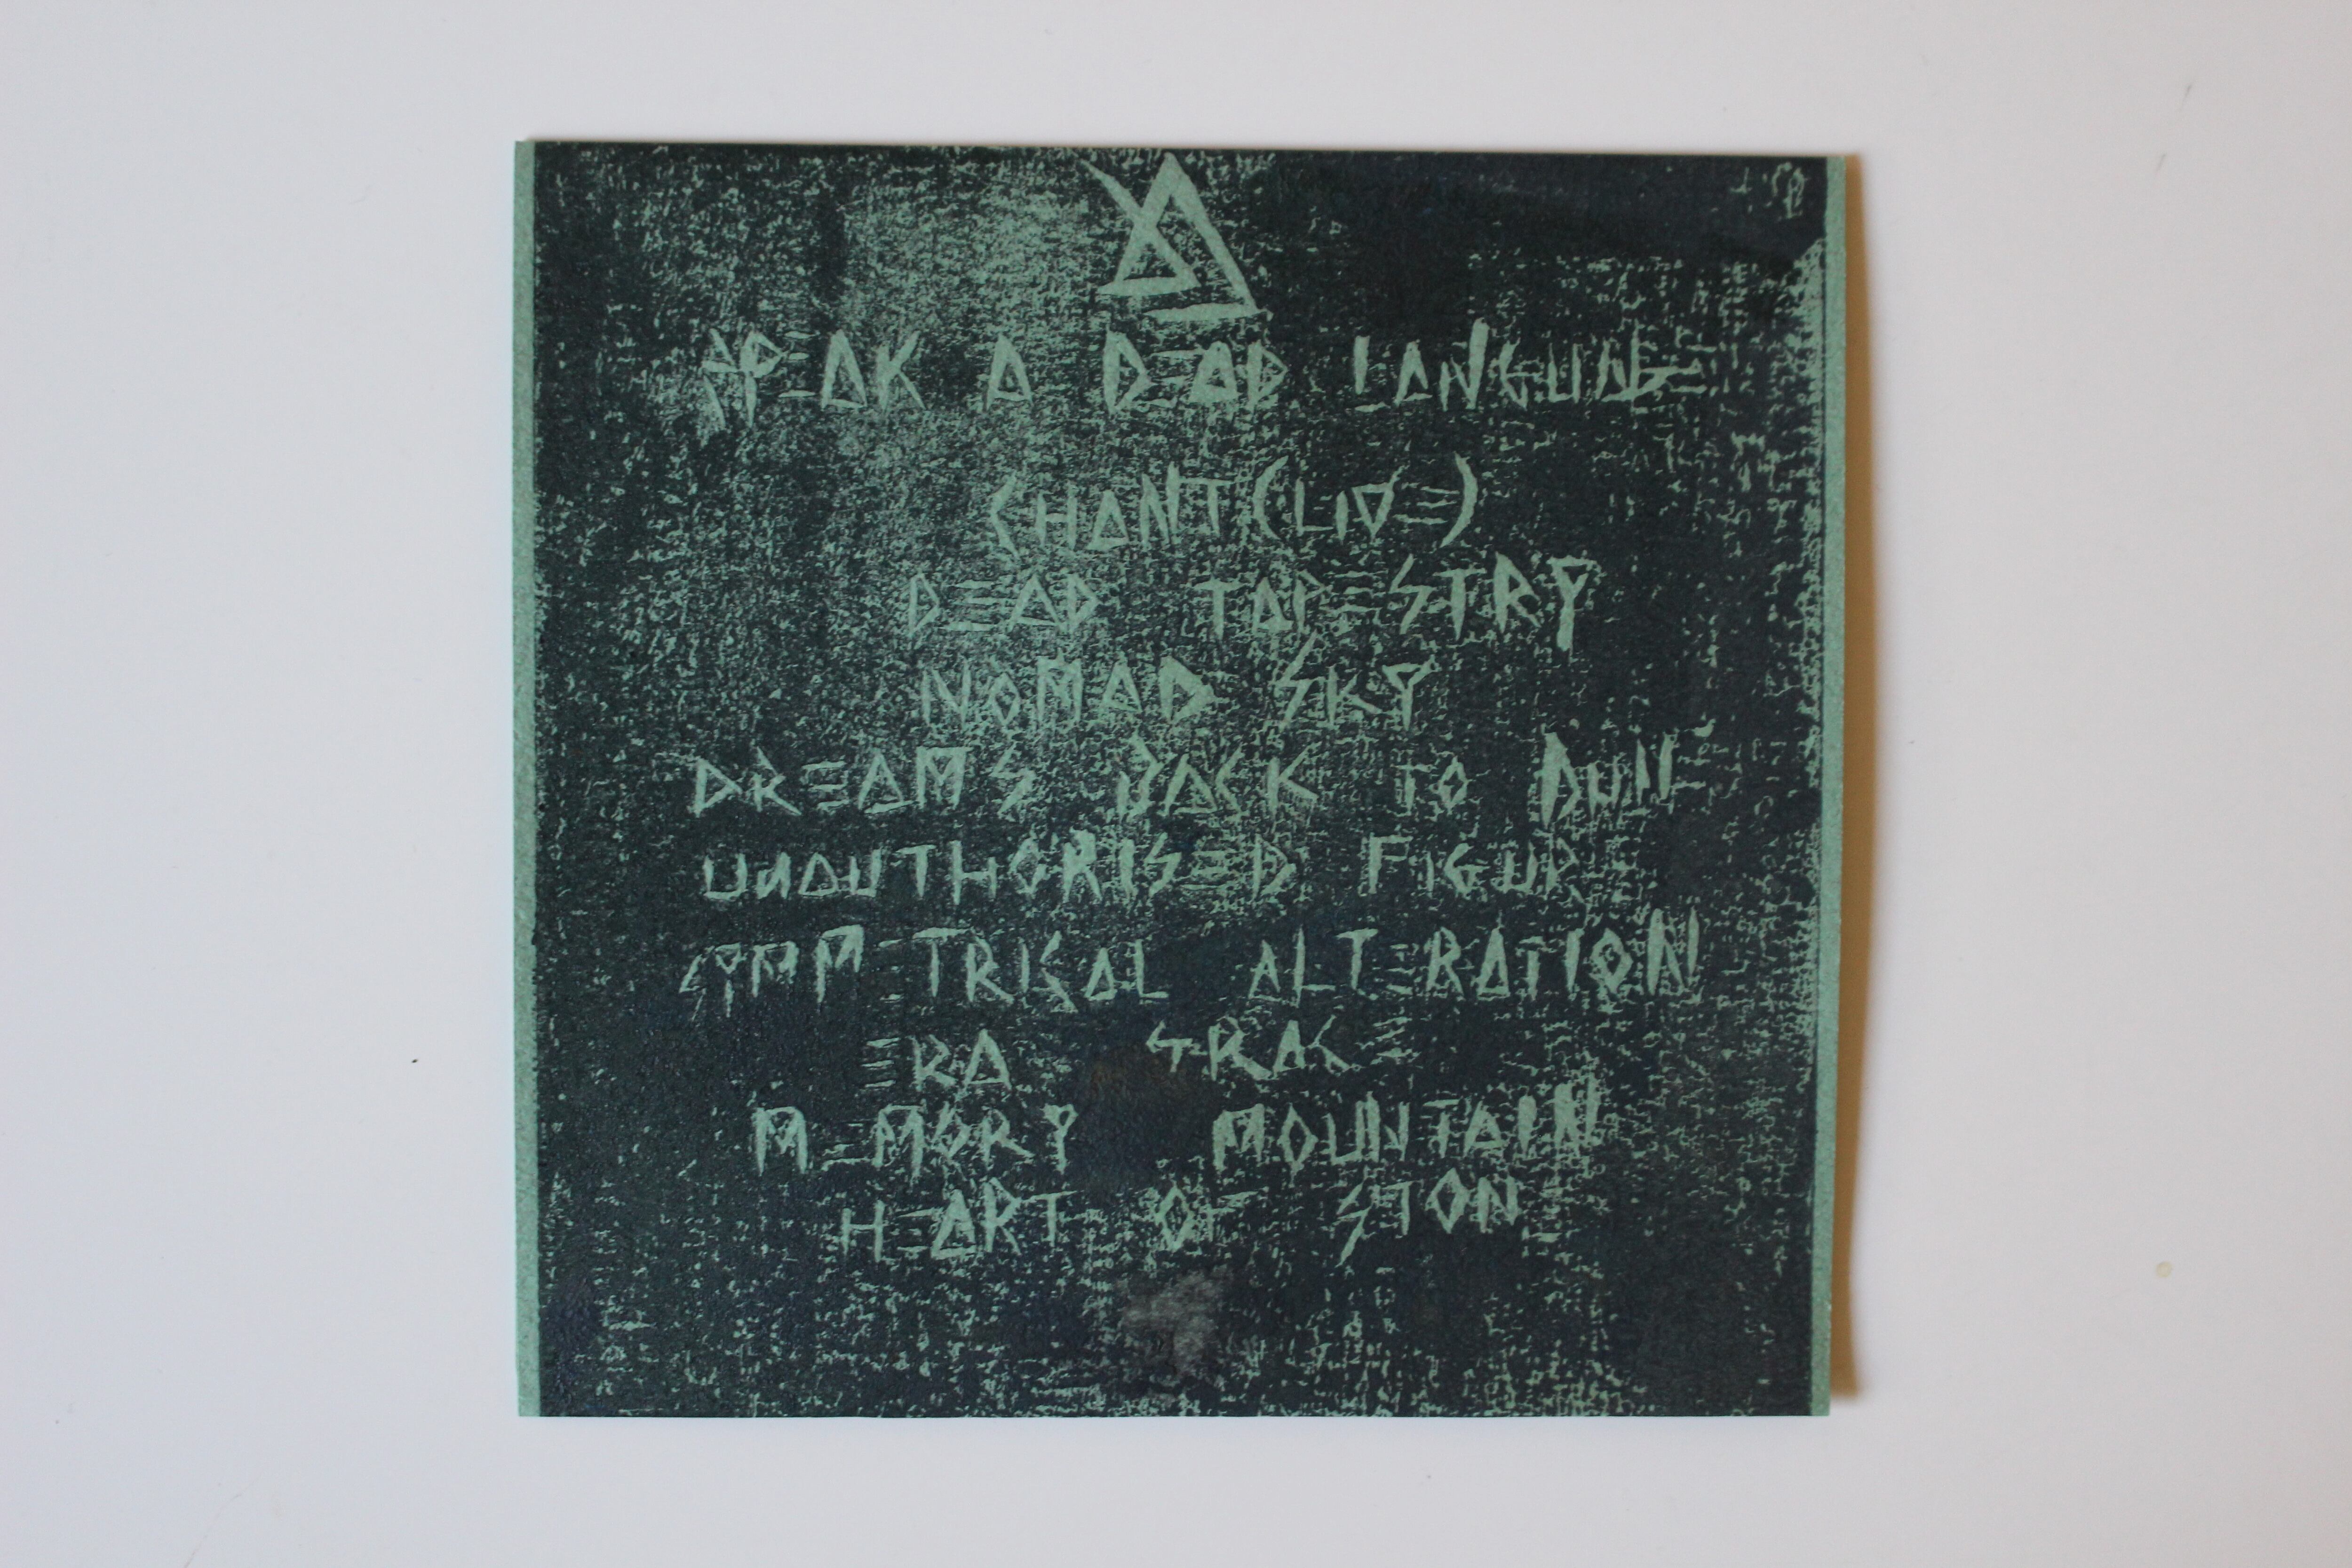 SPEAK A DEAD LANGUAGE
CHANT (LIVE)
DEAD TAPESTRY
NOMAD SKY
DREAMS BACK TO DUNE
UNAUTHORISED FIGURE
SYMMETRICAL ALTERATION
ERA GRACE
MEMORY MOUNTAIN
HEART OF STONE